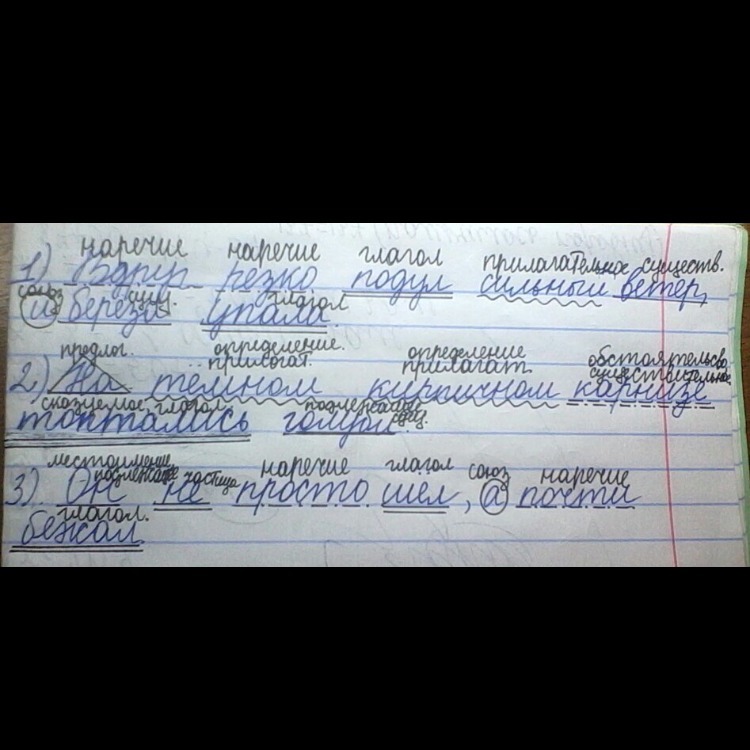 наречие наречие глагол прилагательное существ.
1) Вдруг резко подул сильный ветер,
союз сущ. глагол
и берёза упала.
предлог. определение. определение обстоятельсво
прилогат. прилагат. существительное
2) На тёмном кирпичном карнизе
сказуемое, глагол. подлежащее
сущ.
топтались голуби.
местоимение наречие глагол союз наречие
подлежащее частица
3) Он не просто шел, а почти
глагол.
бежал.